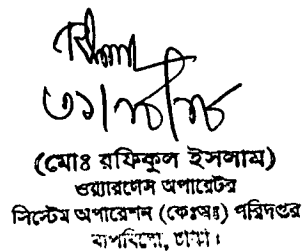 ৩১/৮/৮
(মোঃ রফিকুল ইসলাম)
ওয়্যারলেস অপারেটর
সিস্টেম অপারেশন (কেঃঅঃ) পরিদপ্তর
বাপবিবো, ঢাকা।